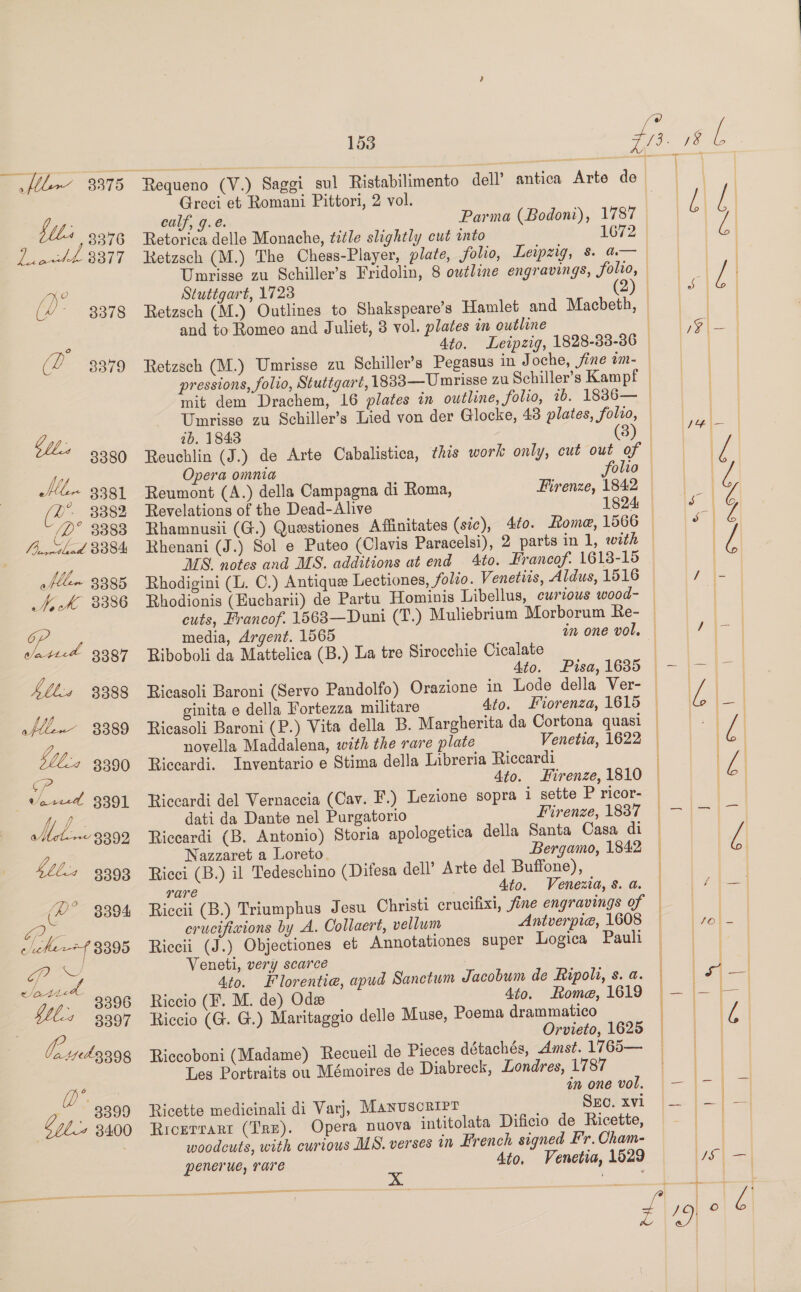 153
£13. 18 6
Allen 3375 Requeno (V.) Saggi sul Ristabilimento dell’ antica Arte de
Greci et Romani Pittori, 2 vol.
calf, g.e. Parma (Bodoni), 1787
Ellis 3376 Retorica delle Monache, title slightly cut into 1672
3377 Retzsch (M.) The Chess-Player, plate, folio, Leipzig, s. a.—
Umrisse zu Schiller’s Fridolin, 8 outline engravings, folio,
Stuttgart, 1723 (2)
Do 3378 Retzsch (M.) Outlines to Shakspeare’s Hamlet and Macbeth,
and to Romeo and Juliet, 3 vol. plates in outline
4to. Leipzig, 1828-33-36
Do 3379 Retzsch (M.) Umrisse zu Schiller’s Pegasus in Joche, fine im-
pressions, folio, Stuttgart, 1833—Umrisse zu Schiller’s Kampf
mit dem Drachem, 16 plates in outline, folio, ib. 1836—
Umrisse zu Schiller’s Lied von der Glocke, 43 plates, folio,
ib. 1843 (3)
Ellis 3380 Reuchlin (J.) de Arte Cabalistica, this work only, cut out of
Opera omnia folio
Allen 3381 Reumont (A.) della Campagna di Roma, Firenze, 1842
Do 3382 Revelations of the Dead-Alive 1824
Do 3383 Rhamnusii (G.) Quæstiones Affinitates (sic), 4to. Romæ, 1566
3384 Rhenani (J.) Sol e Puteo (Clavis Paracelsi), 2 parts in 1, with
MS. notes and MS. additions at end 4to. Francof. 1613-15
Allen 3385 Rhodigini (L. C.) Antiquæ Lectiones, folio. Venetiis, Aldus, 1516
3386 Rhodionis (Eucharii) de Partu Hominis Libellus, curious wood-
cuts, Francof. 1563—Duni (T.) Muliebrium Morborum Re-
media, Argent. 1565 in one vol.
Passed 3387 Riboboli da Mattelica (B.) La tre Sirocchie Cicalate
4to. Pisa, 1635
Ellis 3388 Ricasoli Baroni (Servo Pandolfo) Orazione in Lode della Ver-
ginita e della Fortezza militare 4to. Fiorenza, 1615
Allen 3389 Ricasoli Baroni (P.) Vita della B. Margherita da Cortona quasi
novella Maddalena, with the rare plate Venetia, 1622
Ellis 3390 Riccardi. Inventario e Stima della Libreria Riccardi
4to. Firenze, 1810
Passed 3391 Riccardi del Vernaccia (Cav. F.) Lezione sopra i sette P ricor-
dati da Dante nel Purgatorio Firenze, 1837
3392 Riccardi (B. Antonio) Storia apologetica della Santa Casa di
Nazzaret a Loreto Bergamo, 1842
Ellis 3393 Ricci (B.) il Tedeschino (Difesa dell’ Arte del Buffone),
rare 4to. Venezia, s. a.
Do 3394 Riccii (B.) Triumphus Jesu Christi crucifixi, fine engravings of
crucifixions by A. Collaert, vellum Antverpiæ, 1608
3395 Riccii (J.) Objectiones et Annotationes super Logica Pauli
Veneti, very scarce
4to. Florentiæ, apud Sanctum Jacobum de Ripoli, s. a.
Passed 3396 Riccio (F. M. de) Odæ 4to. Romæ, 1619
Ellis 3397 Riccio (G. G.) Maritaggio delle Muse, Poema drammatico
Orvieto, 1625
Passed 3398 Riccoboni (Madame) Recueil de Pieces détachés, Amst. 1765—
Les Portraits ou Mémoires de Diabreck, Londres, 1787
in one vol.
Do 3399 Ricette medicinali di Varj, MANUSCRIPT SEC. XVI
Ellis 3400 RICETTARI (TRE). Opera nuova intitolata Dificio de Ricette,
woodcuts, with curious MS. verses in French signed Fr. Cham-
penerue, rare 4to. Venetia, 1529
X
£ 19 0 6